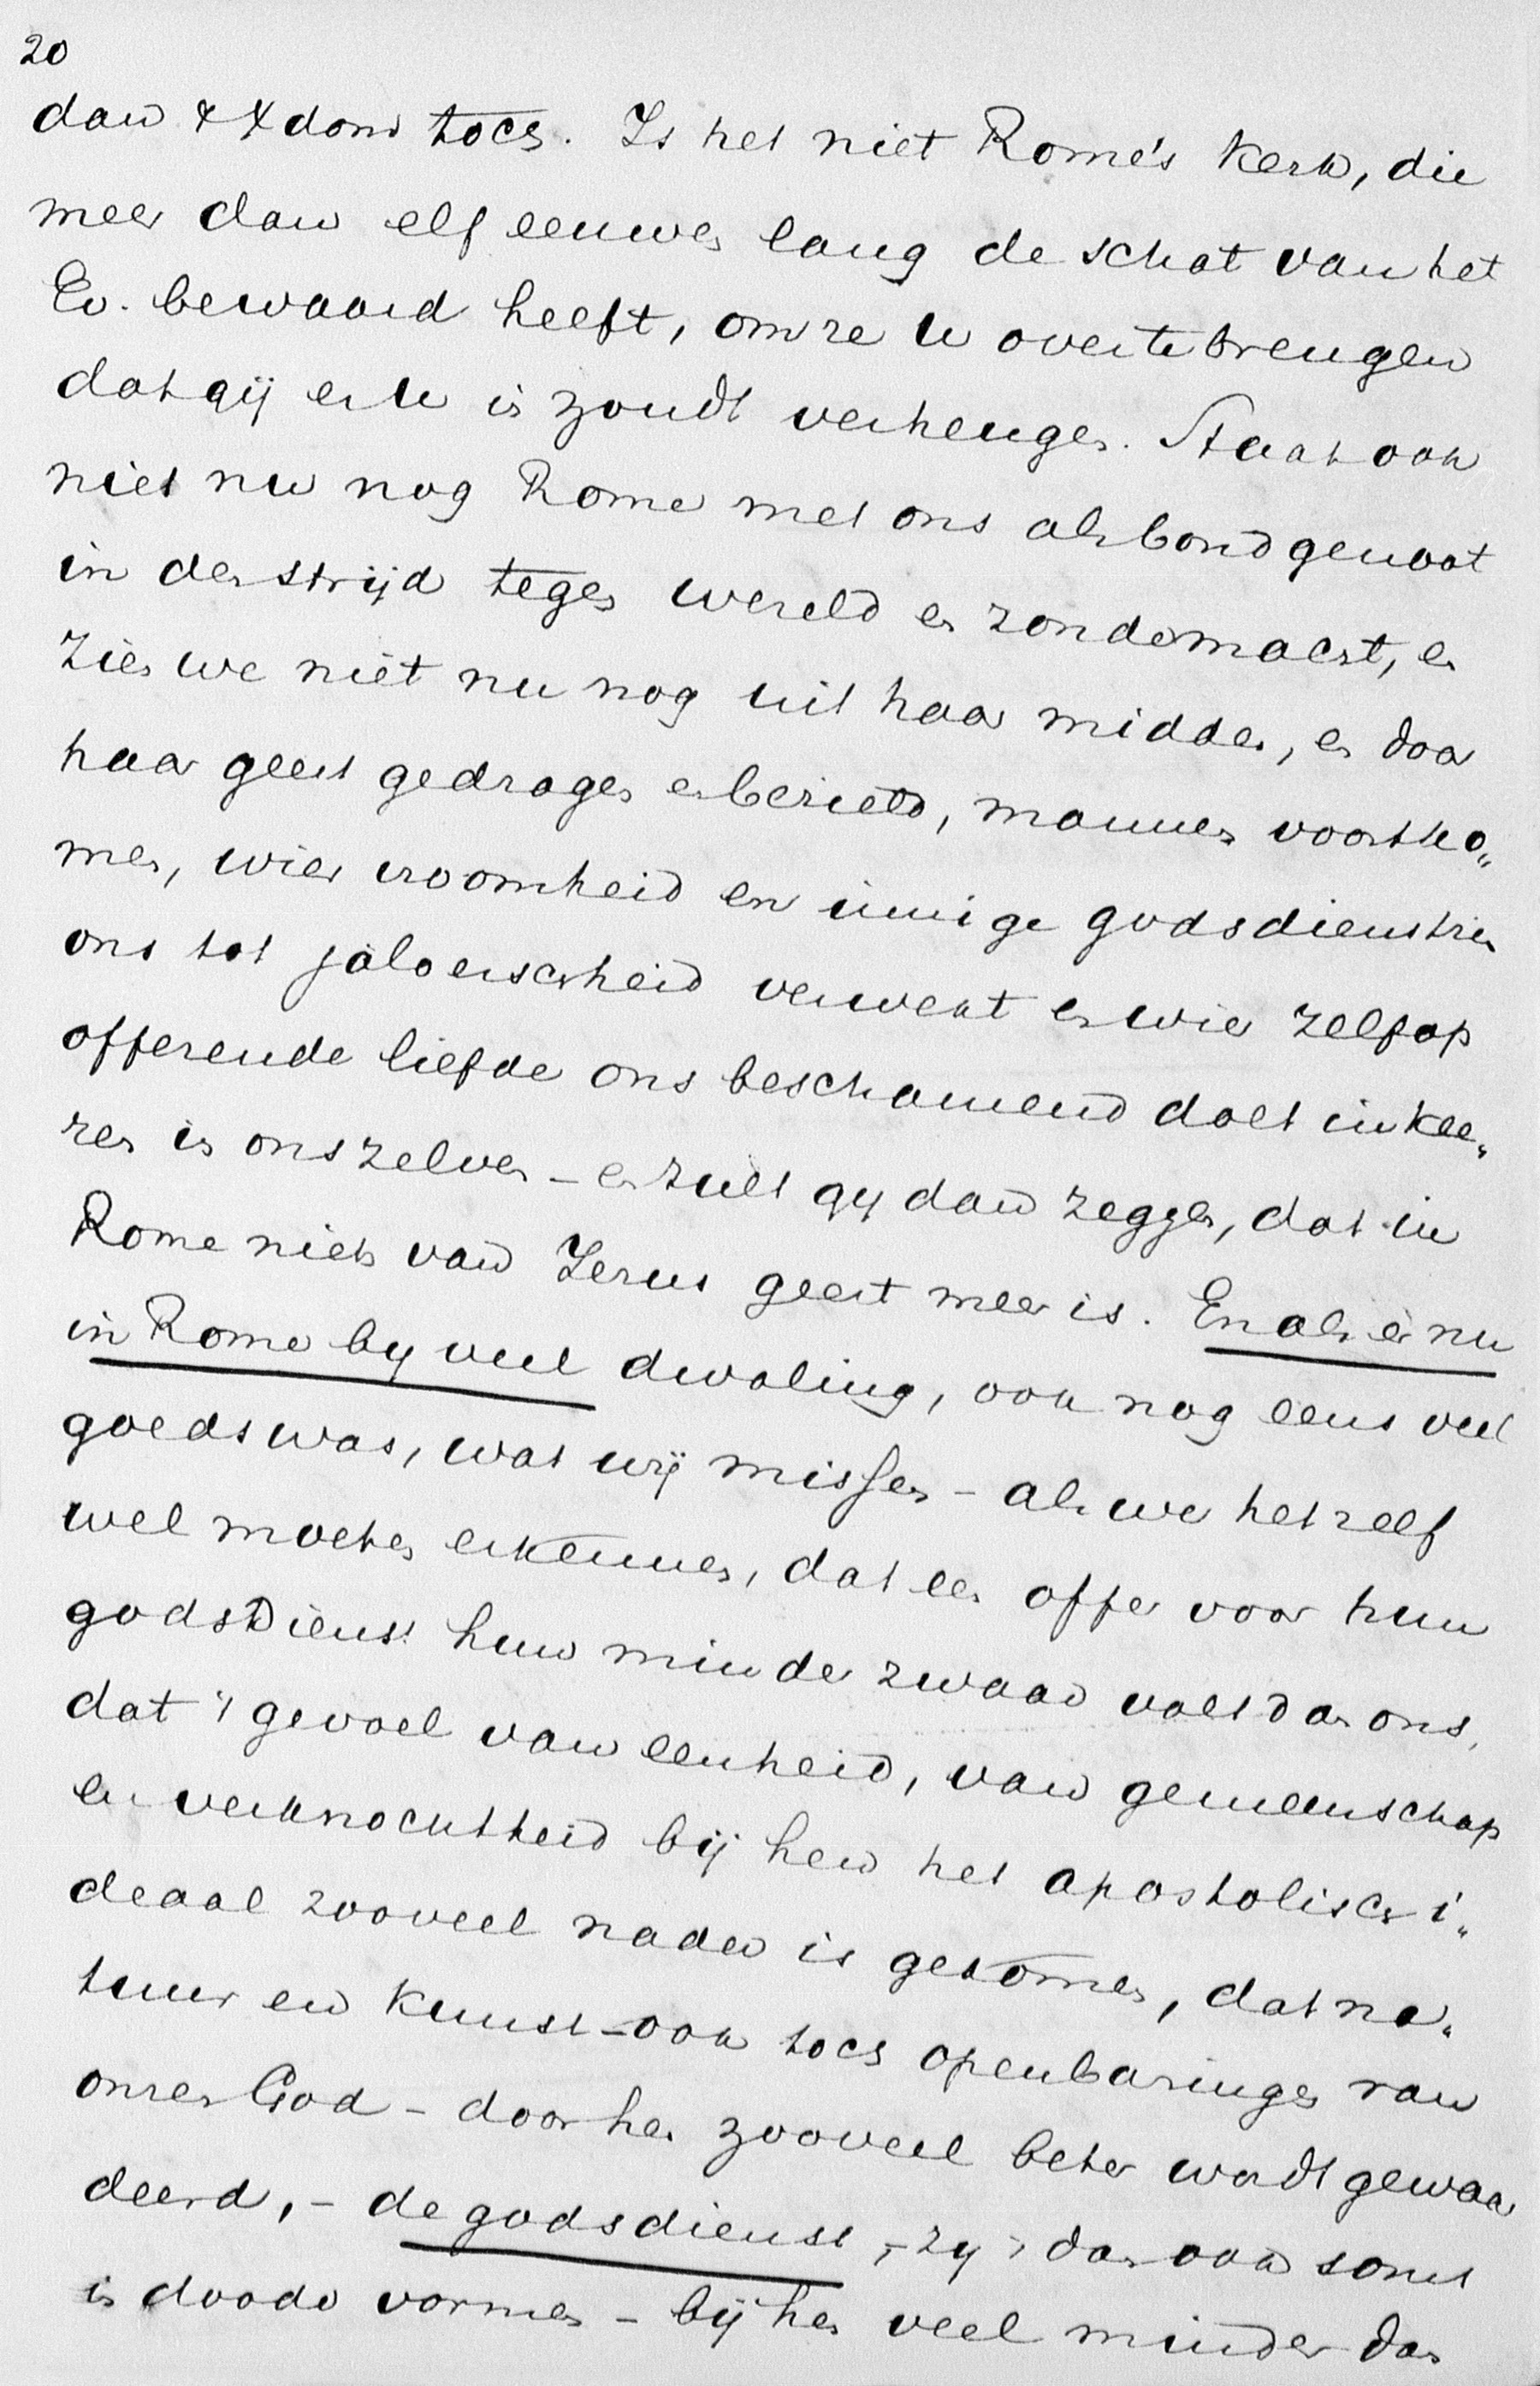 20
dan & Xdom toch. Is het niet Rome's Kerk, die
meer dan elf eeuwen lang de schat van het
Ev. bewaard heeft, om ze u over te brengen
dat gij er u in zoudt verheugen. Staat ook
niet nu nog Rome met ons als bondgenoot
in den strijd tegen wereld en zondemacht, en
zien we niet nu nog uit haar midden, en door
haar geest gedragen en bezield, mannen voortko„
men, wier vroomheid en innige godsdienstzin
ons tot jaloerschheid verwekt en wier zelfop
offerende liefde ons beschamend doet inkee„
ren in onszelven – en zult gij dan zeggen, dat in
Rome niets van Jezus geest meer is. En als er nu
in Rome by veel dwaling, ook nog eens veel
goeds was, wat wij missen – als we het zelf
wel moeten erkennen, dat een offer voor hun
godsdienst hun minder zwaar valt dan ons,
dat 't gevoel van eenheid, van gemeenschap
en verknochtheid bij hen het apostolisch i„
deaal zooveel nader is gekomen, dat na„
tuur en kunst – ook toch openbaringen van
onzen God – door hen zooveel beter wordt gewaar
deerd, – de godsdienst, – zy 't dan ook soms
in doode vormen – bij hen veel minder dan